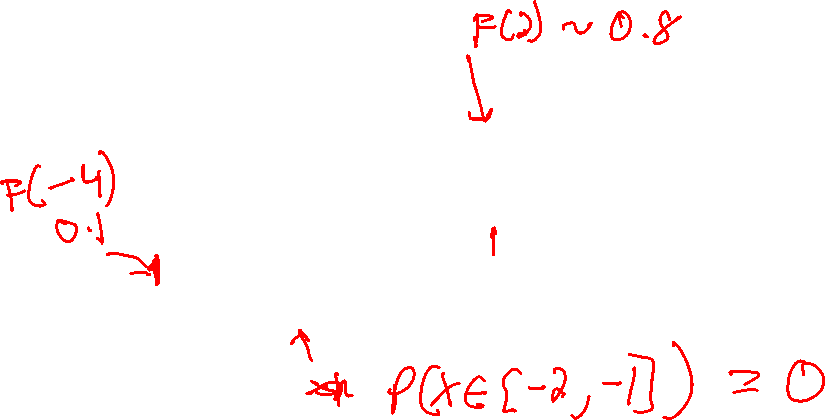 F(2) ~ 0.8
F(-4)
0.1
P(X∈[-2,-1]) = 0